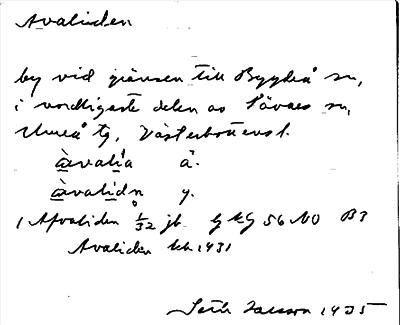 Avaliden
by vid gränsen till Bygdeå sn,
i nordligaste delen av Sävars sn,
Umeå tg, Västerbottens l.
àvalía ä.
àvalídn y.
1 Afvaliden 1/32 jb. GEG 56 NO B3
Avaliden tch 1931
1935